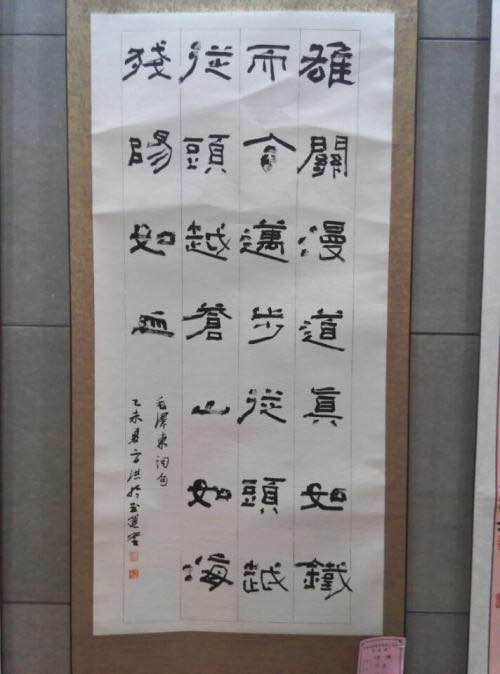 雄關漫道真如鐵
而今邁步從頭越
從頭越蒼山如海
殘陽如血
毛澤東詞句
乙未春